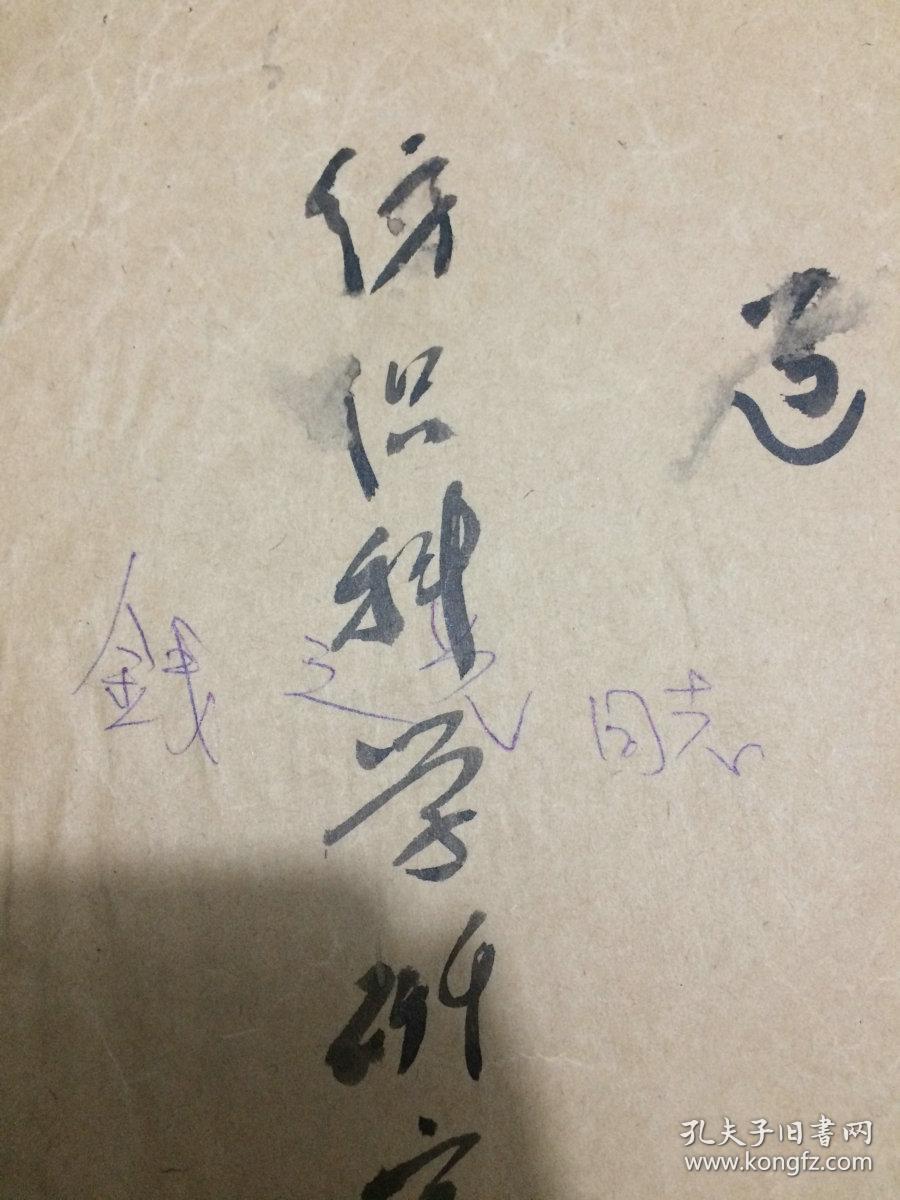 纺织科学研
钱之光同志
孔夫子旧書网
www.kongfz.com